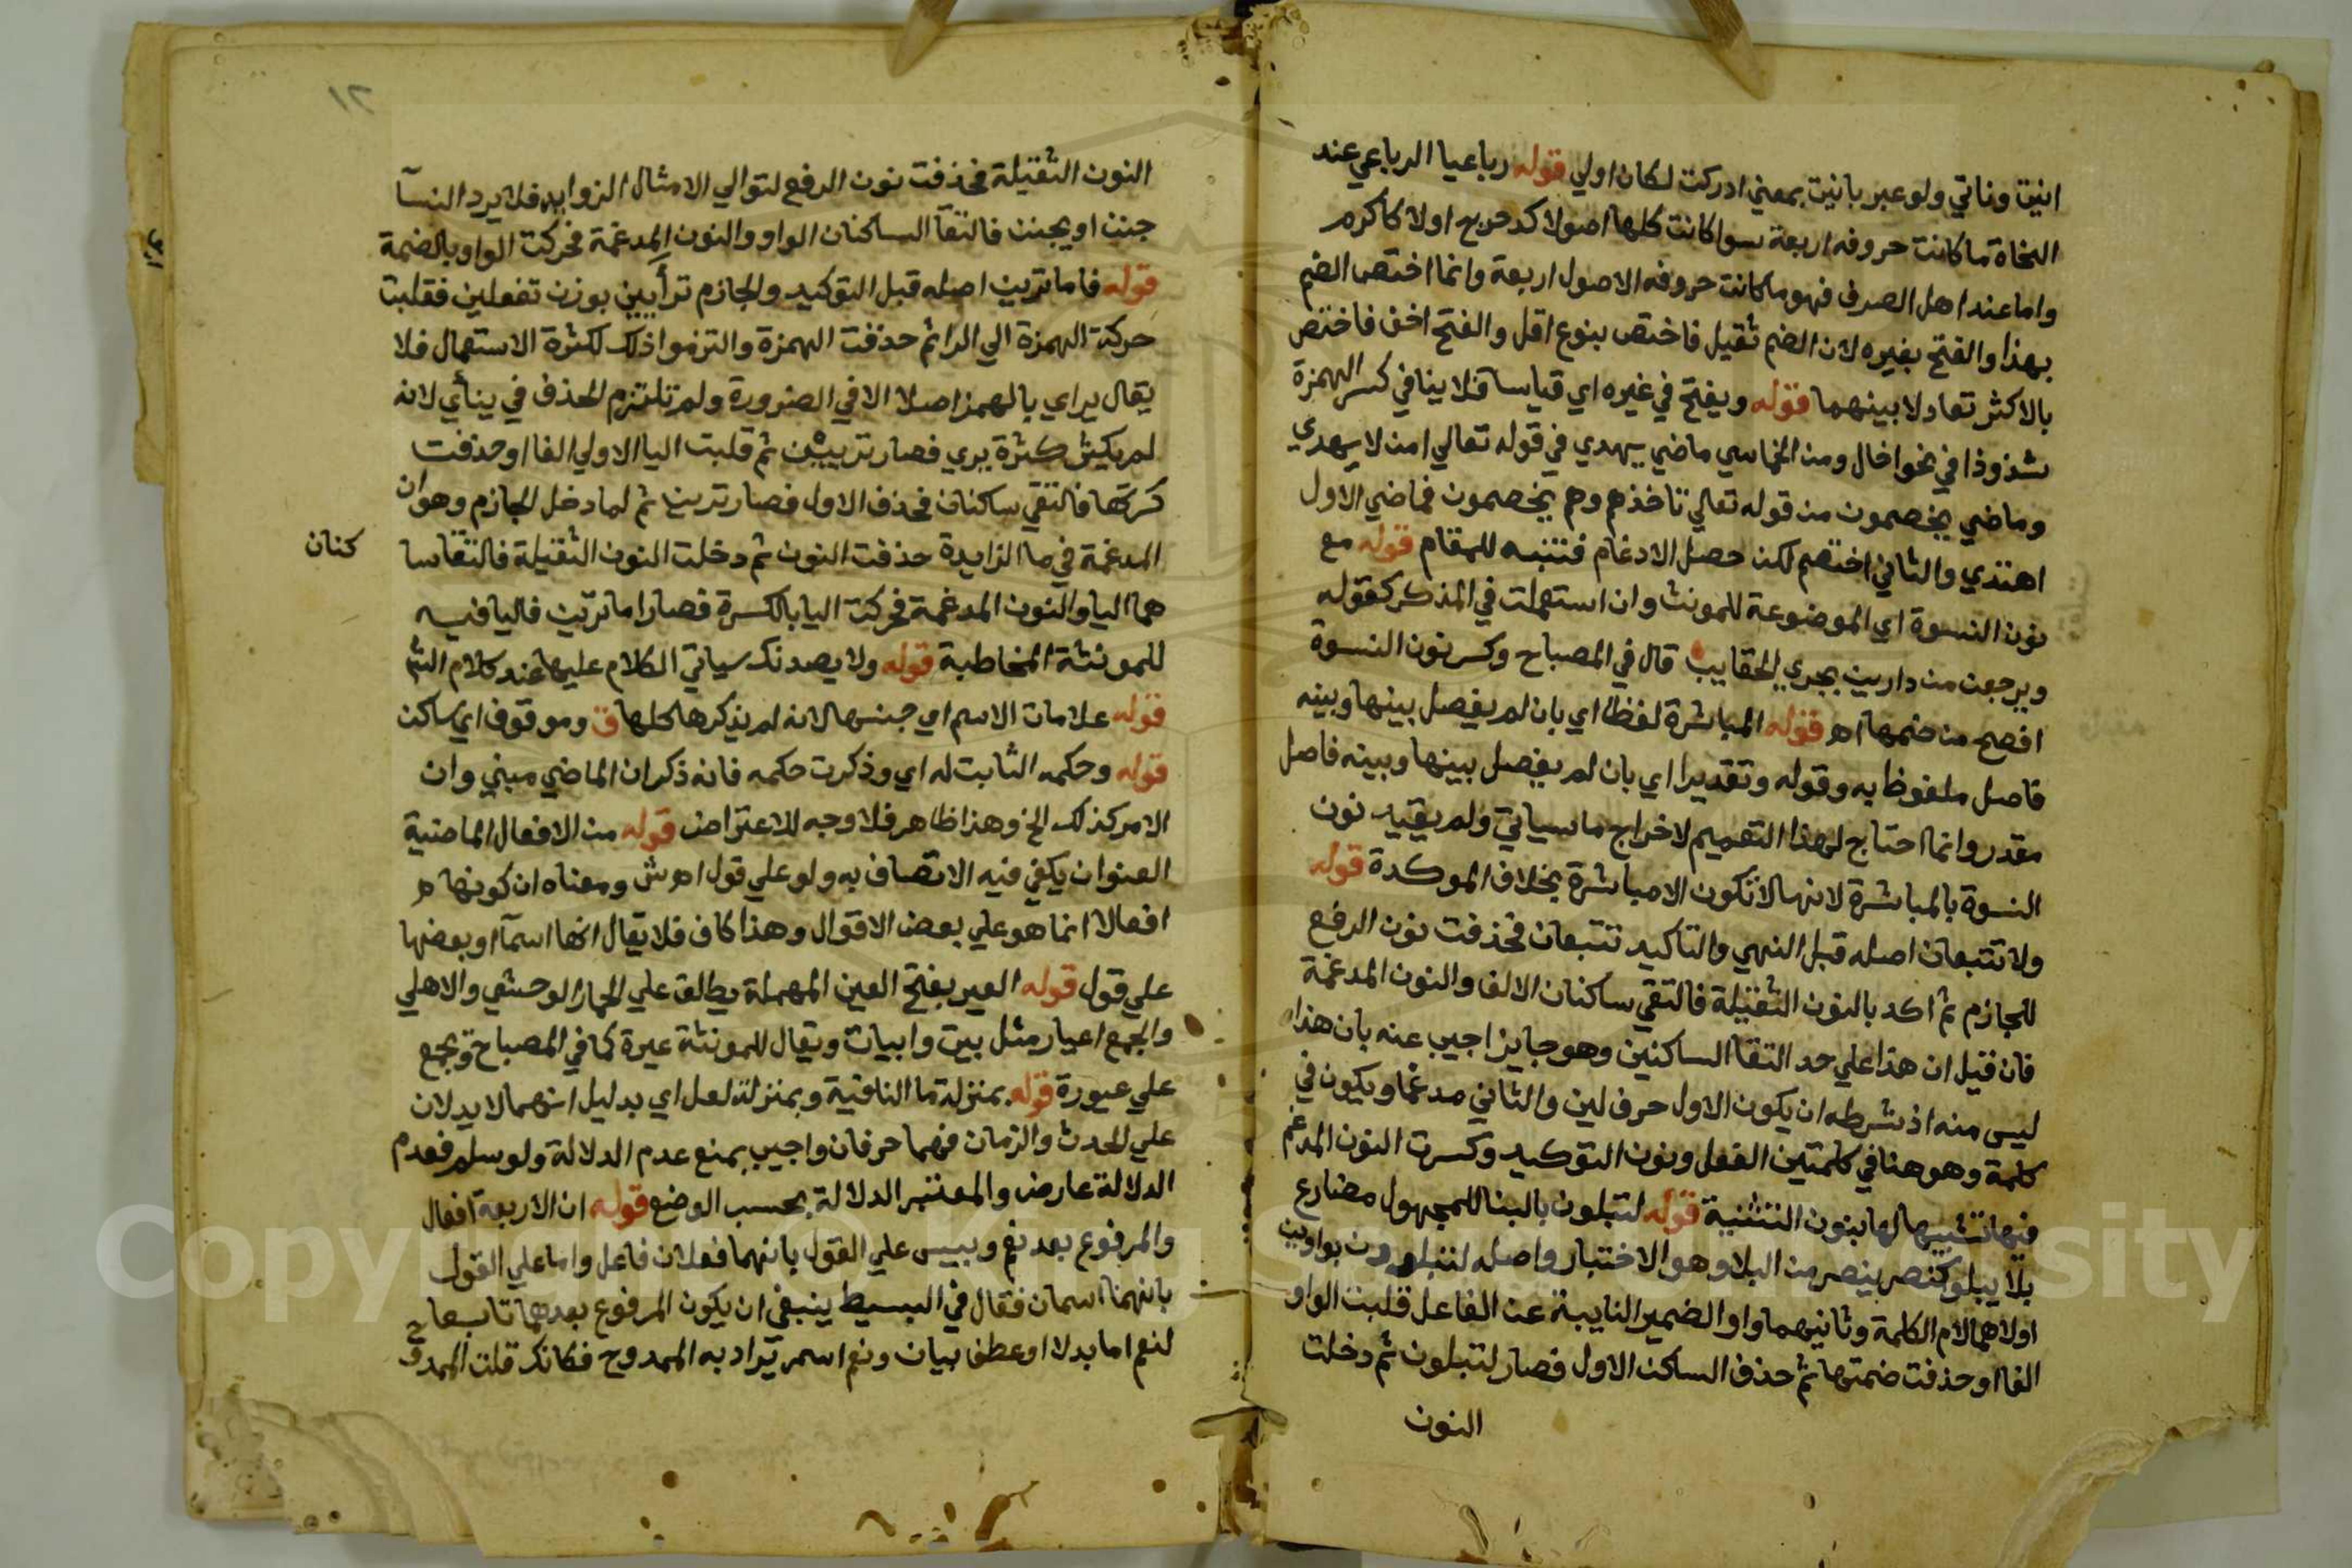 انيت وناتي ولو عبر بانيت بمعني ادركت لكان اولي قوله رباعيا الرباعي عند
النحاة ما كانت حروفه اربعة سوا كانت كلها اصولا كدحرج اولا كاكرم
واما عند اهل الصرف فهو ما كانت حروفه الاصول اربعة وانما اختص الضم
بهذا والفتح بغيره لان الضم ثقيل فاختص بنوع اقل والفتح اخف فاختص
بالاكثر تعادلا بينهما قوله ويفتح في غيره اي قياسا فلا ينافي كسر الهمزة
شذوذا في نحو اخال ومن الخماسي ماضي يهدي في قوله تعالي امن لا يهدي
وماضي يخصمون من قوله تعالي تاخذهم وهم يخصمون فماضي الاول
اهتدي والثاني اختصم لكن حصل الادغام فتنبه للمقام قوله مع
نون النسوة اي الموضوعة للمونث وان استعملت في المذكر كقوله
ويرجعن من دارين بجري الحقايب قال في المصباح وكسر نون النسوة
افصح من ضمها اه قوله المباشرة لفظا اي بان لم يفصل بينها وبينه
فاصل ملفوظ به وقوله وتقديرا اي بان لم يفصل بينها وبينه فاصل
مقدر وانما احتاج لهذا التعميم لاخراج ما سياتي ولم يقيد نون
النسوة بالمباشرة لانها لا تكون الا مباشرة بخلاف الموكدة قوله
ولا تتبعان اصله قبل النهي والتاكيد تتبعان فحذفت نون الرفع
للجازم ثم اكد بالنون الثقيلة فالتقي ساكنان الالف والنون المدغمة
فان قيل ان هذا علي حد التقا الساكنين وهو جايز اجيب عنه بان هذا
ليس منه اذ شرطه ان يكون الاول حرف لين والثاني مدغما ويكون في
كلمة وهو هنا في كلمتين الفعل ونون التوكيد وكسرت النون المدغم
فيها تشبيها لها بنون التثنية قوله لتبلون بالبنا للمجهول مضارع
بلا يبلو كنصر ينصر من البلا وهو الاختبار واصله لتبلوون بواوين
اولاهما لام الكلمة وثانيهما واو الضمير النايبة عن الفاعل قلبت الواو
الفا او حذفت ضمتها ثم حذف الساكن الاول فصار لتبلون ثم دخلت
النون
١٢
النون الثقيلة فحذفت نون الرفع لتوالي الامثال الزوايد فلا يرد النسآ
جنن او يجنن فالتقآ الساكنان الواو والنون المدغمة فحركت الواو بالضمة
قوله فاما ترين اصله قبل التوكيد والجازم ترأيين بوزن تفعلين فنقلت
حركة الهمزة الي الرا ثم حذفت الهمزة والتزموا ذلك لكثرة الاستعمال فلا
يقال يراي بالهمز اصلا الا في الضرورة ولم تلتزم الحذف في ينأي لانه
لم يكثر كثرة يري فصار تريين ثم قلبت اليا الاولي الفا او حذفت
كسرتها فالتقي ساكنان فحذف الاول فصار ترين ثم لما دخل الجازم وهو ان
المدغمة في ما الزايدة حذفت النون ثم دخلت النون الثقيلة فالتقا سا
كنان
هما اليا والنون المدغمة فحركت اليا بالكسرة فصار اما ترين فاليا فيه
للمونثة المخاطبة قوله ولا يصدنك سياتي الكلام عليها عند كلام الش
قوله علامات الاسم اي جنسها لانه لم يذكرها كلها ق وموقوف اي ساكن
قوله وحكمه الثابت له اي وذكرت حكمه فانه ذكر ان الماضي مبني وان
الامر كذلك الخ وهذا ظاهر فلا وجه للاعتراض قوله من الافعال الماضية
العنوان يكفي فيه الاتصاف به ولو علي قول اه ش ومعناه ان كونها
افعالا انما هو علي بعض الاقوال وهذا كاف فلا يقال انها اسمآ او بعضها
علي قول قوله العير بفتح العين المهملة يطلق علي الحمار الوحشي والاهلي
والجمع اعيار مثل بيت وابيات ويقال للمونثة عيرة كما في المصباح وتجمع
علي عيورة قوله بمنزلة ما النافية وبمنزلة لعل اي بدليل انهما لا يدلان
علي الحدث والزمان فهما حرفان واجيب بمنع عدم الدلالة ولو سلم فعدم
الدلالة عارض والمعتبر الدلالة بحسب الوضع قوله ان الاربعة افعال
والمرفوع بعد نعم وبيس علي القول بانهما فعلان فاعل واما علي القول
بانهما اسمان فقال في البسيط ينبغي ان يكون المرفوع بعدهما تابعا
لنعم اما بدلا او عطف بيان ونعم اسم يراد به الممدوح فكانك قلت الممدوح
Copyright © King Saud University